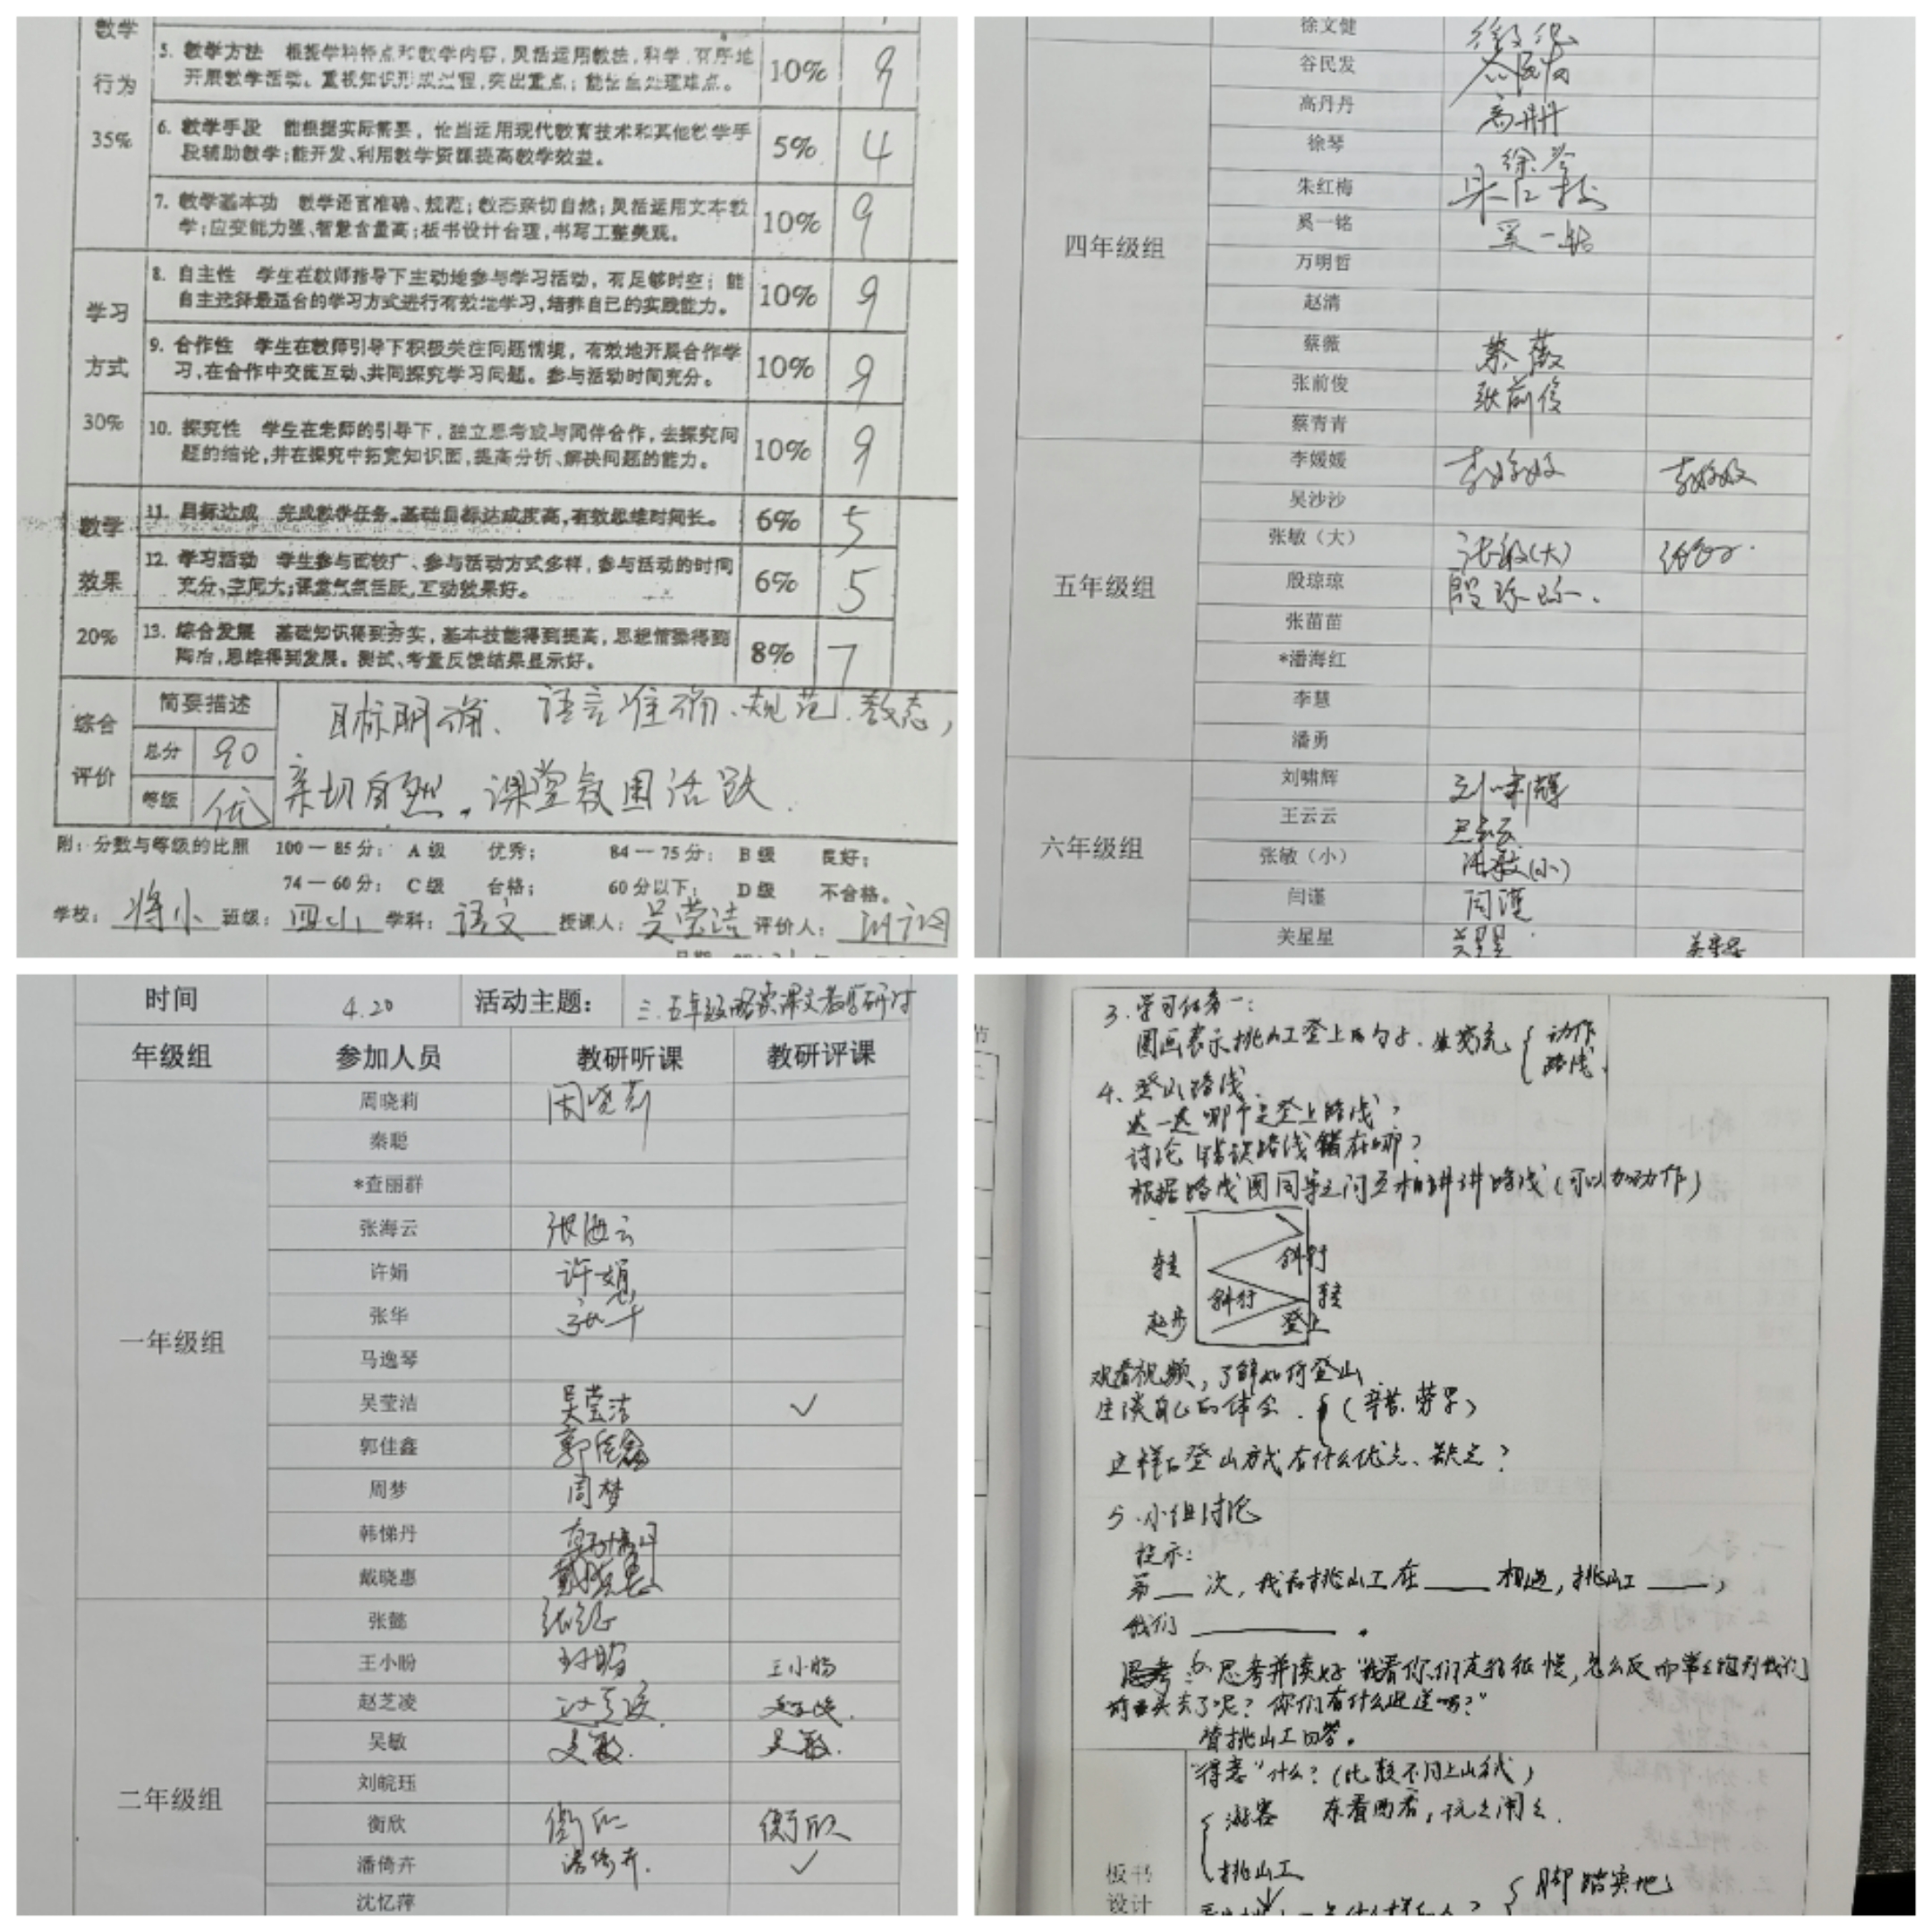 数学
行为
35%
5. 教学方法 根据学科特点和教学内容，灵活运用教法，科学、有序地
开展教学活动。重视知识形成过程，突出重点；能恰当处理难点。
10% 9
6. 教学手段 能根据实际需要，恰当运用现代教育技术和其他教学手
段辅助教学；能开发、利用教学资源提高教学效益。
5% 4
7. 教学基本功 教学语言准确、规范；教态亲切自然；灵活运用文本教
学；应变能力强、智慧含量高；板书设计合理，书写工整美观。
10% 9
学习
方式
30%
8. 自主性 学生在教师指导下主动地参与学习活动，有足够时空；能
自主选择最适合的学习方式进行有效地学习，培养自己的实践能力。
10% 9
9. 合作性 学生在教师引导下积极关注问题情境，有效地开展合作学
习，在合作中交流互动、共同探究学习问题。参与活动时间充分。
10% 9
10. 探究性 学生在老师的引导下，独立思考或与同伴合作，去探究问
题的结论，并在探究中拓宽知识面，提高分析、解决问题的能力。
10% 9
教学
效果
20%
11. 目标达成 完成教学任务。基础目标达成度高，有效思维时间长。
6% 5
12. 学习活动 学生参与面较广、参与活动方式多样，参与活动的时间
充分、空间大；课堂气氛活跃，互动效果好。
6% 5
13. 综合发展 基础知识得到夯实，基本技能得到提高，思想情操得到
陶冶，思维得到发展。测试、考量反馈结果显示好。
8% 7
综合
评价
简要描述
总分 90
等级 优
目标明确、语言准确、规范、教态，
亲切自然。课堂氛围活跃.
附：分数与等级的比照 100—85分： A级 优秀； 84—75分： B级 良好；
74—60分： C级 合格； 60分以下： D级 不合格。
学校： 将小 班级： 学科： 语文 授课人： 吴莹洁 评价人：
徐文健
四年级组
谷民发
高丹丹 高丹丹
徐琴 徐琴
朱红梅 朱红梅
奚一铭 奚一铭
万明哲
赵清
蔡薇 蔡薇
张前俊 张前俊
蔡青青
五年级组
李媛媛 李媛媛 李媛媛
吴沙沙
张敏（大） 张敏(大)
殷琼琼 殷琼琼.
张苗苗
*潘海红
李慧
潘勇
六年级组
刘啸辉 刘啸辉
王云云 王云云
张敏（小） 张敏(小)
闫谨 闫谨
关星星 关星星 关星星
时间 4.20 活动主题： 三.五年级略读课文教学研讨
年级组 参加人员 教研听课 教研评课
一年级组
周晓莉 周晓莉
秦聪
*查丽群
张海云 张海云
许娟 许娟
张华 张华
马逸琴
吴莹洁 吴莹洁 ✓
郭佳鑫 郭佳鑫
周梦 周梦
韩悌丹 韩悌丹
戴晓惠 戴晓惠
二年级组
张懿
王小盼 王小盼
赵芝凌 赵芝凌
吴敏 吴敏. 吴敏.
刘皖珏
衡欣 衡欣 衡欣
潘倚卉 潘倚卉. ✓
沈忆萍
3. 学习任务一：
圈画表示挑山工登上的句子. 并交流 { 动作
路线
4、登山路线
选一选哪个是登上路线？
讨论错误路线错在哪？
根据路线图同学之间互相讲讲路线（可以加动作）
转 斜行
斜行 转
起步 登上
观看视频，了解如何登山
生谈自己的体会. （辛苦、劳累）
这样的登山方式有什么优点、缺点？
5.小组讨论
提示：
第__次，我和挑山工在____相遇，挑山工____，
我们________。
6.思考并读好“我看你们走得很慢，怎么反而常常跑到我们
前头去了呢？你们有什么近道吗？”
替挑山工回答。
板书
设计
“得意”什么？（比较不同上山方式）
游客 东看西看，玩玩闹闹.
挑山工
{ 脚踏实地